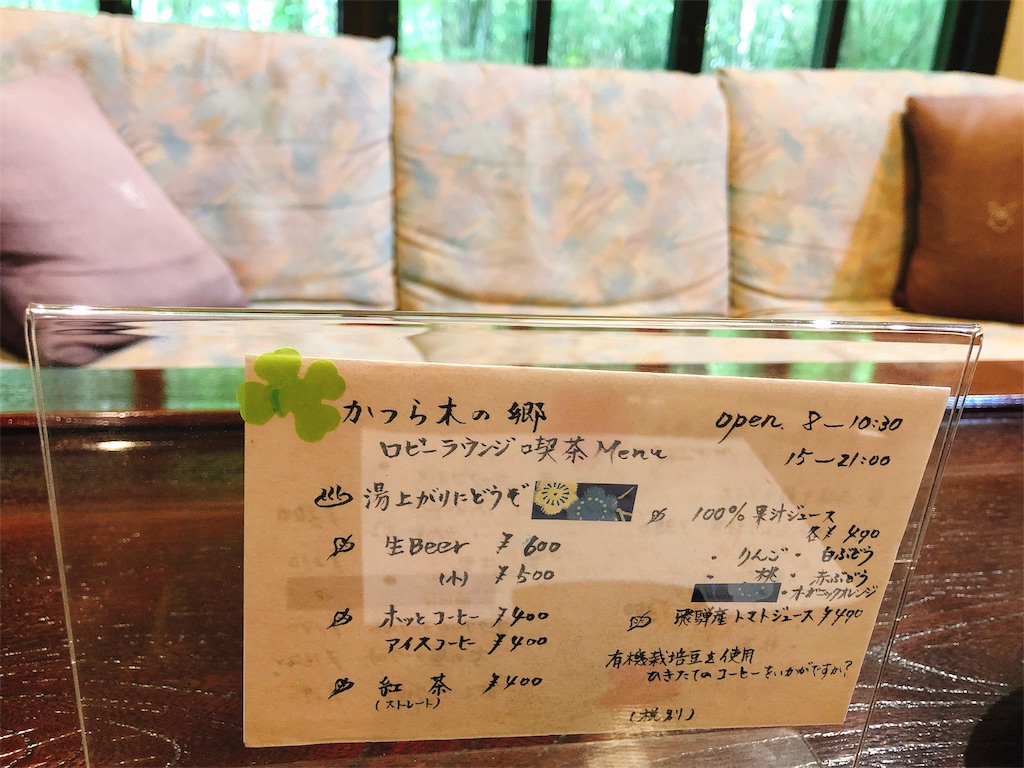 かつら木の郷
open. 8―10:30
ロビーラウンジ 喫茶 Menu
15―21:00
湯上がりにどうぞ
生Beer ¥600
(小) ¥500
ホットコーヒー ¥400
アイスコーヒー ¥400
紅茶 ¥400
(ストレート)
100% 果汁ジュース
各¥490
・りんご ・白ぶどう
・桃 ・赤ぶどう
・オーガニックオレンジ
飛騨産トマトジュース ¥490
有機栽培豆を使用
ひきたてのコーヒーをいかがですか?
(税別)